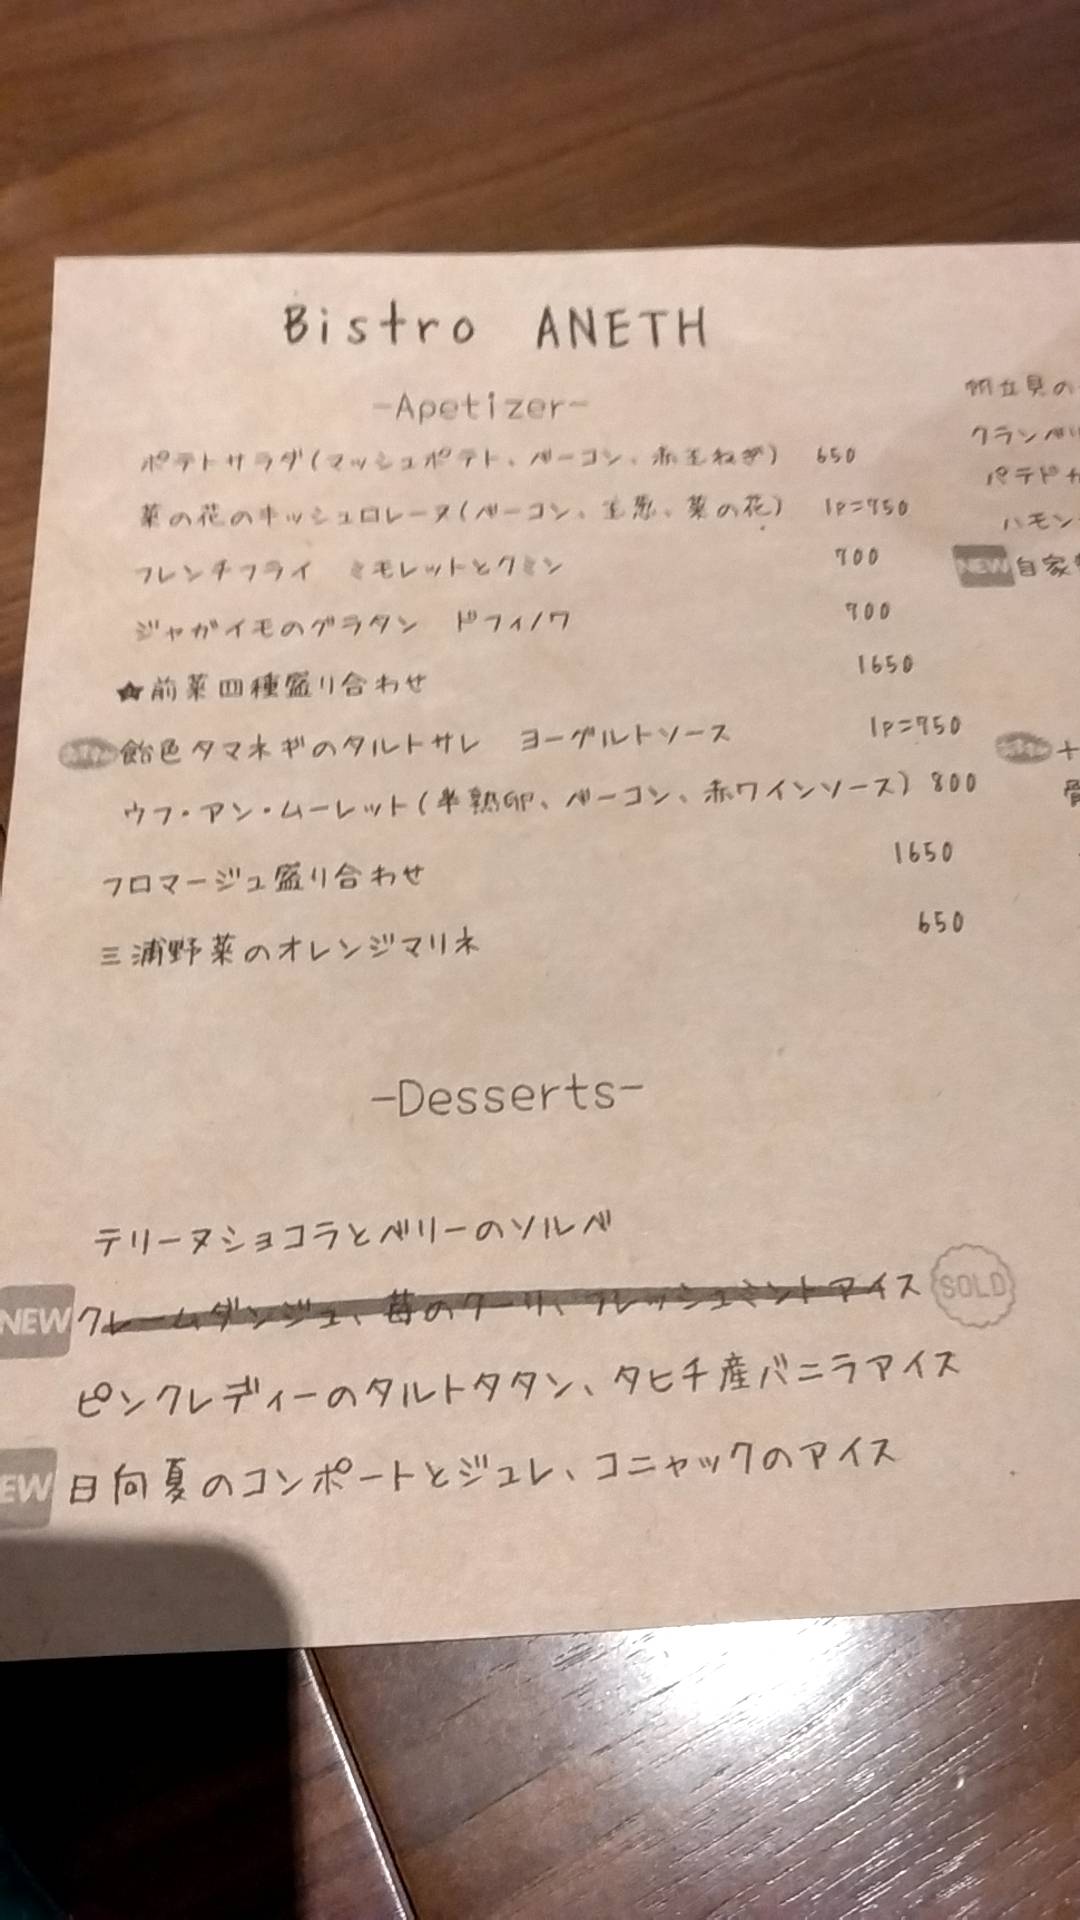 Bistro ANETH
-Apetizer-
ポテトサラダ(マッシュポテト、ベーコン、赤玉ねぎ) 650
菜の花のキッシュロレーヌ(ベーコン、玉葱、菜の花) 1p=750
フレンチフライ ミモレットとクミン 700
ジャガイモのグラタン ドフィノワ 700
★前菜四種盛り合わせ 1650
飴色タマネギのタルトサレ ヨーグルトソース 1p=750
ウフ・アン・ムーレット(半熟卵、ベーコン、赤ワインソース) 800
フロマージュ盛り合わせ 1650
三浦野菜のオレンジマリネ 650
-Desserts-
テリーヌショコラとベリーのソルベ
NEW クレームダンジュ、苺のクーリ、フレッシュミントアイス SOLD
ピンクレディーのタルトタタン、タヒチ産バニラアイス
EW 日向夏のコンポートとジュレ、コニャックのアイス
帆立貝の
クランベリ
パテド
ハモン
NEW 自家